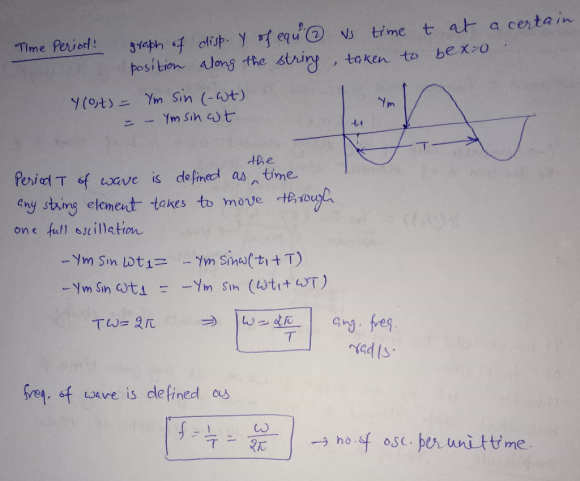 Time Period: graph of disp. Y of equⁿ ② vs time t at a certain
position along the string, taken to be x=0.
Y(0,t) = Ym Sin (-ωt)
= - Ym Sin ωt
Ym
t₁
T
Period T of wave is defined as the time
any string element takes to move through
one full oscillation
-Ym Sin ωt₁ = -Ym Sin ω(t₁+T)
-Ym Sin ωt₁ = -Ym Sin (ωt₁+ωT)
Tω = 2π ⇒ ω = 2π/T ang. freq.
rad/s.
freq. of wave is defined as
f = 1/T = ω/2π → no. of osc. per unit time.